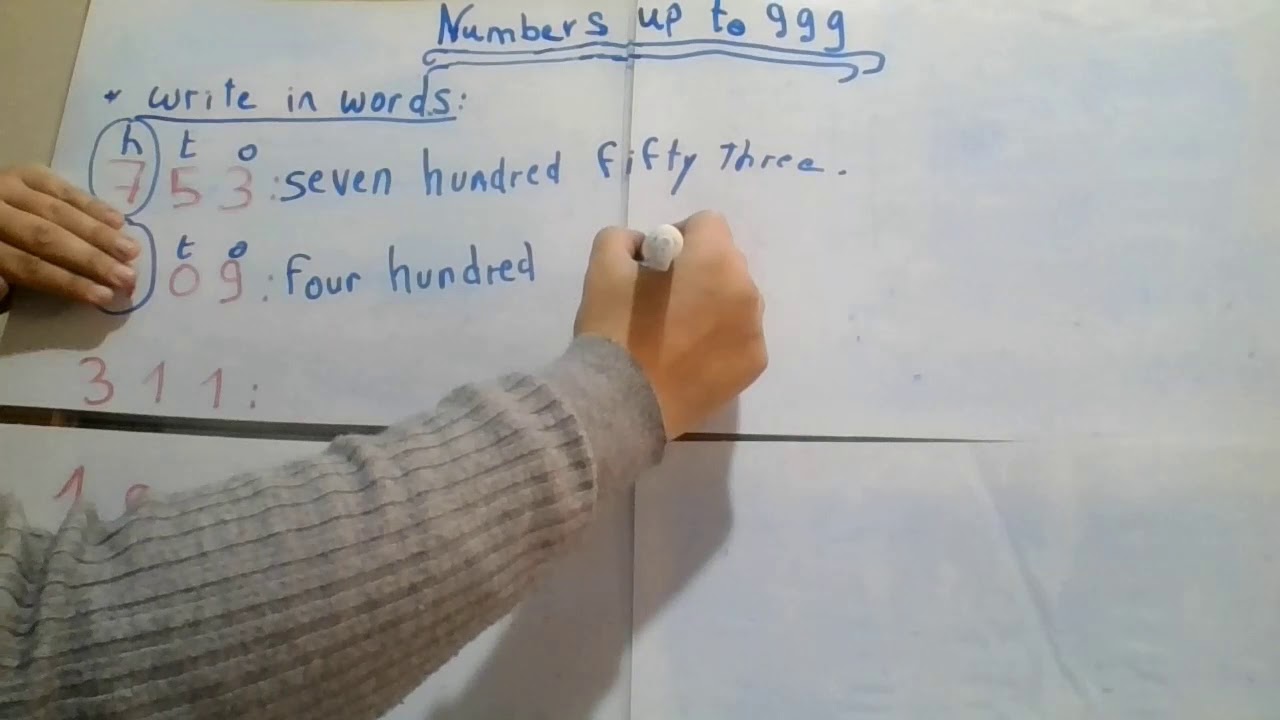 Numbers up to 999
* write in words:
h t o
7 5 3 : seven hundred fifty Three.
t o
0 9 : four hundred
3 1 1 :
1